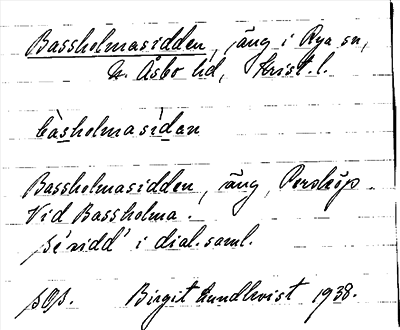 Bassholmasidden, äng i Rya sn,
N. Åsbo hd, Krist. l.
bàsholmasìdan
Bassholmasidden, äng, Perstorp
Vid Bassholma.
i dial. saml.
Birgit Lundkvist 1938.